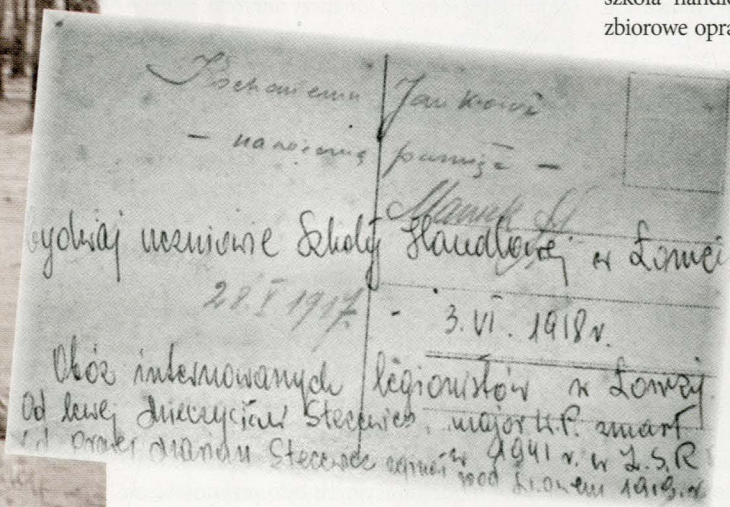 szkoła handlo
zbiorowe opra
Kochanemu Jankowi
– na wieczną pamięć –
Maniek
ydwaj uczniowie Szkoły Handlowej w Łomży
28.V 1917. - 3. VI. 1918 r.
Obóz internowanych legionistów w Łomży.
Od lewej Mieczysław Stecewicz, major W.P. zmarł
od prawej Marian Stecewicz w 1941 r. w Z.S.R
zginął pod Lwowem 1919. r.